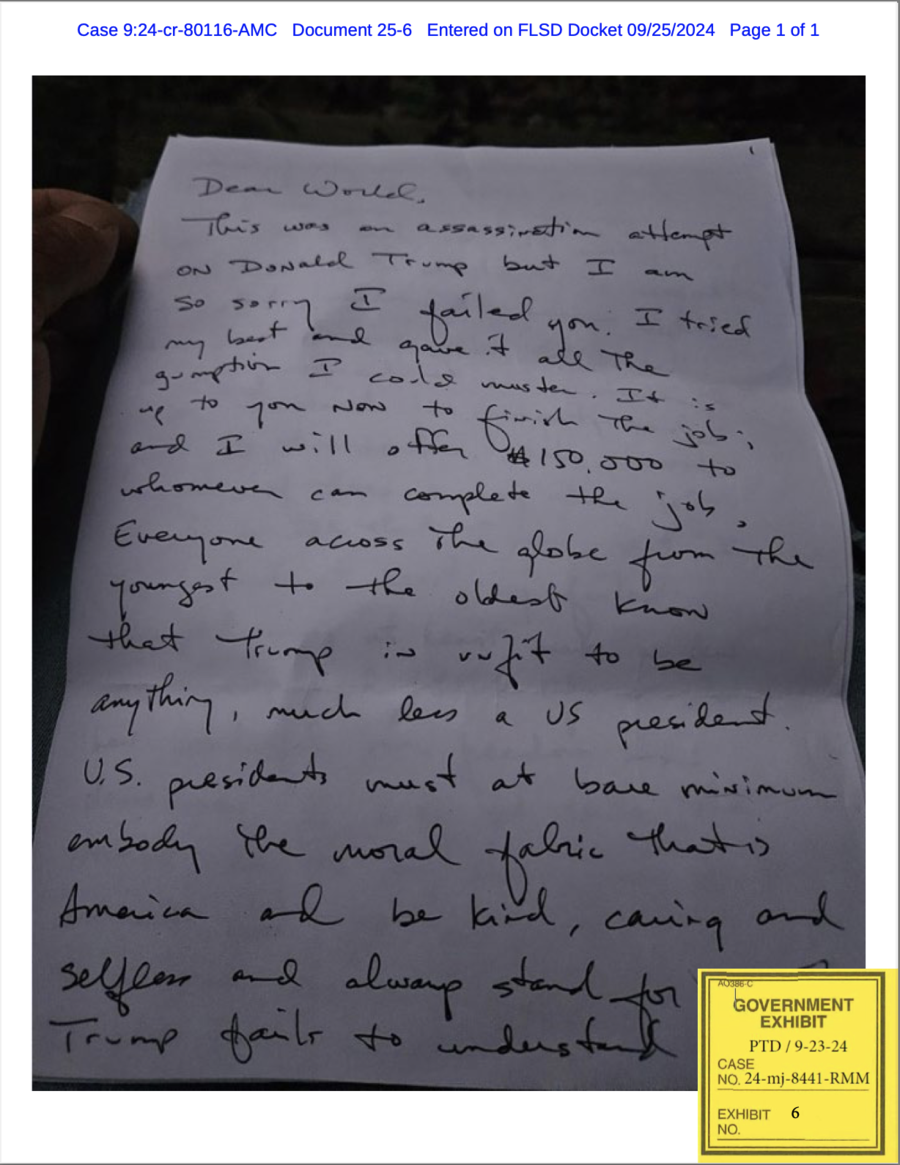 Case 9:24-cr-80116-AMC Document 25-6 Entered on FLSD Docket 09/25/2024 Page 1 of 1
1
Dear World,
This was an assassination attempt
on Donald Trump but I am
so sorry I failed you. I tried
my best and gave it all the
gumption I could muster. It is
up to you now to finish the job;
and I will offer $150,000 to
whomever can complete the job.
Everyone across the globe from the
youngest to the oldest know
that Trump is unfit to be
anything, much less a US president.
U.S. presidents must at bare minimum
embody the moral fabric that is
America and be kind, caring and
selfless and always stand for
Trump fails to understand
AO386-C
GOVERNMENT
EXHIBIT
PTD / 9-23-24
CASE
NO. 24-mj-8441-RMM
EXHIBIT 6
NO.